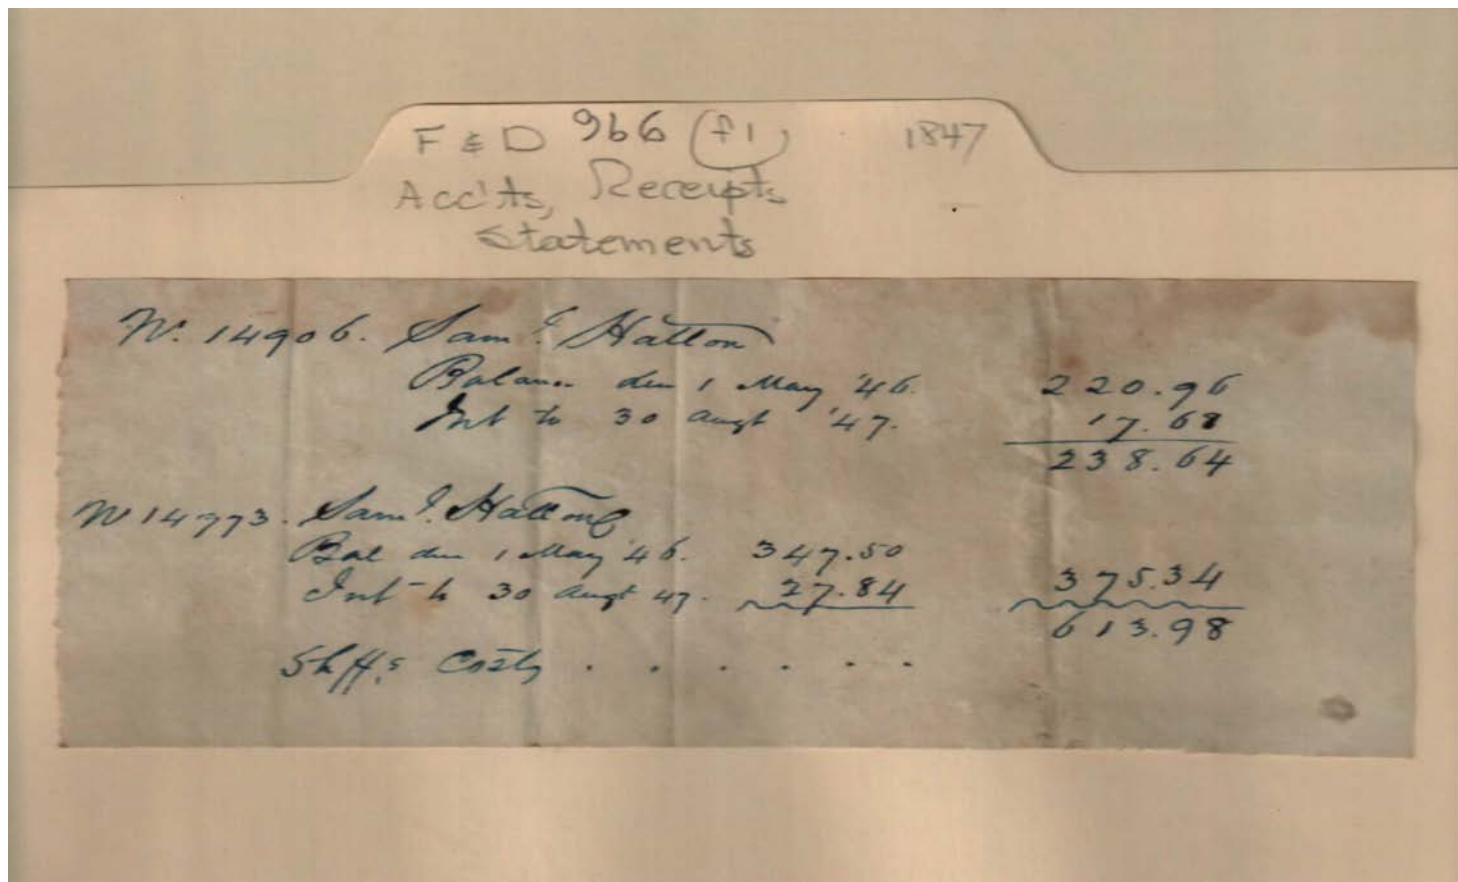 F & D 966 (f1) 1847
Acc'ts, Receipts
Statements
No. 14906. Saml. Hatton
Balance due 1 May '46. 220.96
Int to 30 Augt '47. 17.68
238.64
No 14773. Saml. Hatton
Bal due 1 May '46. 347.50
Int to 30 Augt 47. 27.84 375.34
613.98
Shffs Costs . . . . . .